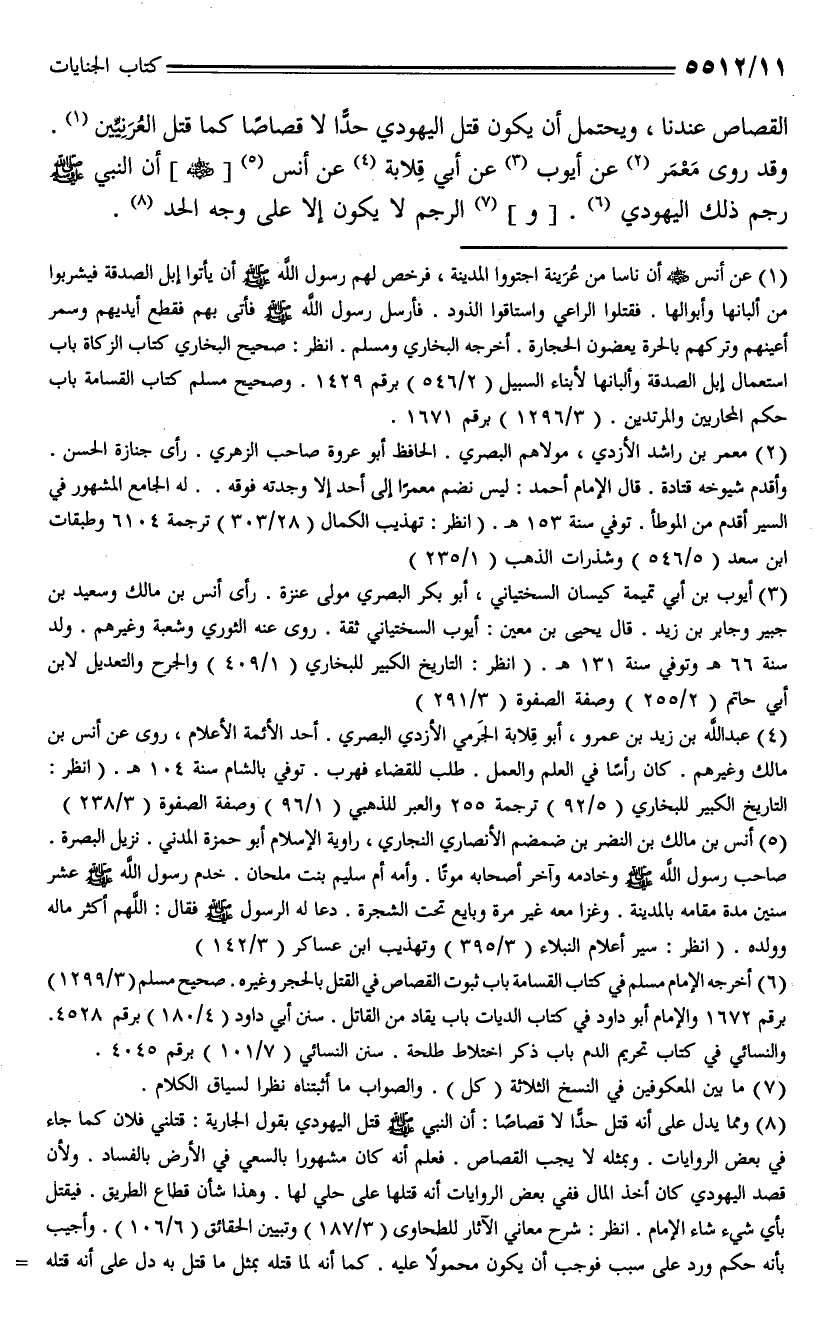 ٥٥١٢/١١ كتاب الجنايات
القصاص عندنا ، ويحتمل أن يكون قتل اليهودي حدًّا لا قصاصًا كما قتل العُرَنِيِّين (١) .
وقد روى مَعْمَر (٢) عن أيوب (٣) عن أبي قِلابة (٤) عن أنس (٥) [ ﷺ ] أن النبي ﷺ
رجم ذلك اليهودي (٦) . [ و ] (٧) الرجم لا يكون إلا على وجه الحد (٨) .
(١) عن أنس ﷺ أن ناسا من عُرَينة اجتووا المدينة ، فرخص لهم رسول اللَّه ﷺ أن يأتوا إبل الصدقة فيشربوا
من ألبانها وأبوالها . فقتلوا الراعي واستاقوا الذود . فأرسل رسول اللَّه ﷺ فأتى بهم فقطع أيديهم وسمر
أعينهم وتركهم بالحرة يعضون الحجارة . أخرجه البخاري ومسلم . انظر : صحيح البخاري كتاب الزكاة باب
استعمال إبل الصدقة وألبانها لأبناء السبيل ( ٥٤٦/٢ ) برقم ١٤٢٩ . وصحيح مسلم كتاب القسامة باب
حكم المحاربين والمرتدين . ( ١٢٩٦/٣ ) برقم ١٦٧١ .
(٢) معمر بن راشد الأزدي ، مولاهم البصري . الحافظ أبو عروة صاحب الزهري . رأى جنازة الحسن .
وأقدم شيوخه قتادة . قال الإمام أحمد : ليس نضم معمرًا إلى أحد إلا وجدته فوقه . . له الجامع المشهور في
السير أقدم من الموطأ . توفي سنة ١٥٣ هـ . ( انظر : تهذيب الكمال ( ٣٠٣/٢٨ ) ترجمة ٦١٠٤ وطبقات
ابن سعد ( ٥٤٦/٥ ) وشذرات الذهب ( ٢٣٥/١ )
(٣) أيوب بن أبي تميمة كيسان السختياني ، أبو بكر البصري مولى عنزة . رأى أنس بن مالك وسعيد بن
جبير وجابر بن زيد . قال يحيى بن معين : أيوب السختياني ثقة . روى عنه الثوري وشعبة وغيرهم . ولد
سنة ٦٦ هـ وتوفي سنة ١٣١ هـ . ( انظر : التاريخ الكبير للبخاري ( ٤٠٩/١ ) والجرح والتعديل لابن
أبي حاتم ( ٢٥٥/٢ ) وصفة الصفوة ( ٢٩١/٣ )
(٤) عبداللَّه بن زيد بن عمرو ، أبو قِلابة الجَرمي الأزدي البصري . أحد الأئمة الأعلام ، روى عن أنس بن
مالك وغيرهم . كان رأسًا في العلم والعمل . طلب للقضاء فهرب . توفي بالشام سنة ١٠٤ هـ . ( انظر :
التاريخ الكبير للبخاري ( ٩٢/٥ ) ترجمة ٢٥٥ والعبر للذهبي ( ٩٦/١ ) وصفة الصفوة ( ٢٣٨/٣ )
(٥) أنس بن مالك بن النضر بن ضمضم الأنصاري النجاري ، راوية الإسلام أبو حمزة المدني . نزيل البصرة .
صاحب رسول اللَّه ﷺ وخادمه وآخر أصحابه موتًا . وأمه أم سليم بنت ملحان . خدم رسول اللَّه ﷺ عشر
سنين مدة مقامه بالمدينة . وغزا معه غير مرة وبايع تحت الشجرة . دعا له الرسول ﷺ فقال : اللَّهم أكثر ماله
وولده . ( انظر : سير أعلام النبلاء ( ٣٩٥/٣ ) وتهذيب ابن عساكر ( ١٤٢/٣ )
(٦) أخرجه الإمام مسلم في كتاب القسامة باب ثبوت القصاص في القتل بالحجر وغيره . صحيح مسلم (١٢٩٩/٣)
برقم ١٦٧٢ والإمام أبو داود في كتاب الديات باب يقاد من القاتل . سنن أبي داود ( ١٨٠/٤ ) برقم ٤٥٢٨.
والنسائي في كتاب تحريم الدم باب ذكر اختلاط طلحة . سنن النسائي ( ١٠١/٧ ) برقم ٤٠٤٥ .
(٧) ما بين المعكوفين في النسخ الثلاثة ( كل ) . والصواب ما أثبتناه نظرا لسياق الكلام .
(٨) ومما يدل على أنه قتل حدًّا لا قصاصًا : أن النبي ﷺ قتل اليهودي بقول الجارية : قتلني فلان كما جاء
في بعض الروايات . وبمثله لا يجب القصاص . فعلم أنه كان مشهورا بالسعي في الأرض بالفساد . ولأن
قصد اليهودي كان أخذ المال ففي بعض الروايات أنه قتلها على حلي لها . وهذا شأن قطاع الطريق . فيقتل
بأي شيء شاء الإمام . انظر : شرح معاني الآثار للطحاوى ( ١٨٧/٣ ) وتبيين الحقائق ( ١٠٦/٦ ) . وأجيب
بأنه حكم ورد على سبب فوجب أن يكون محمولًا عليه . كما أنه لما قتله بمثل ما قتل به دل على أنه قتله =